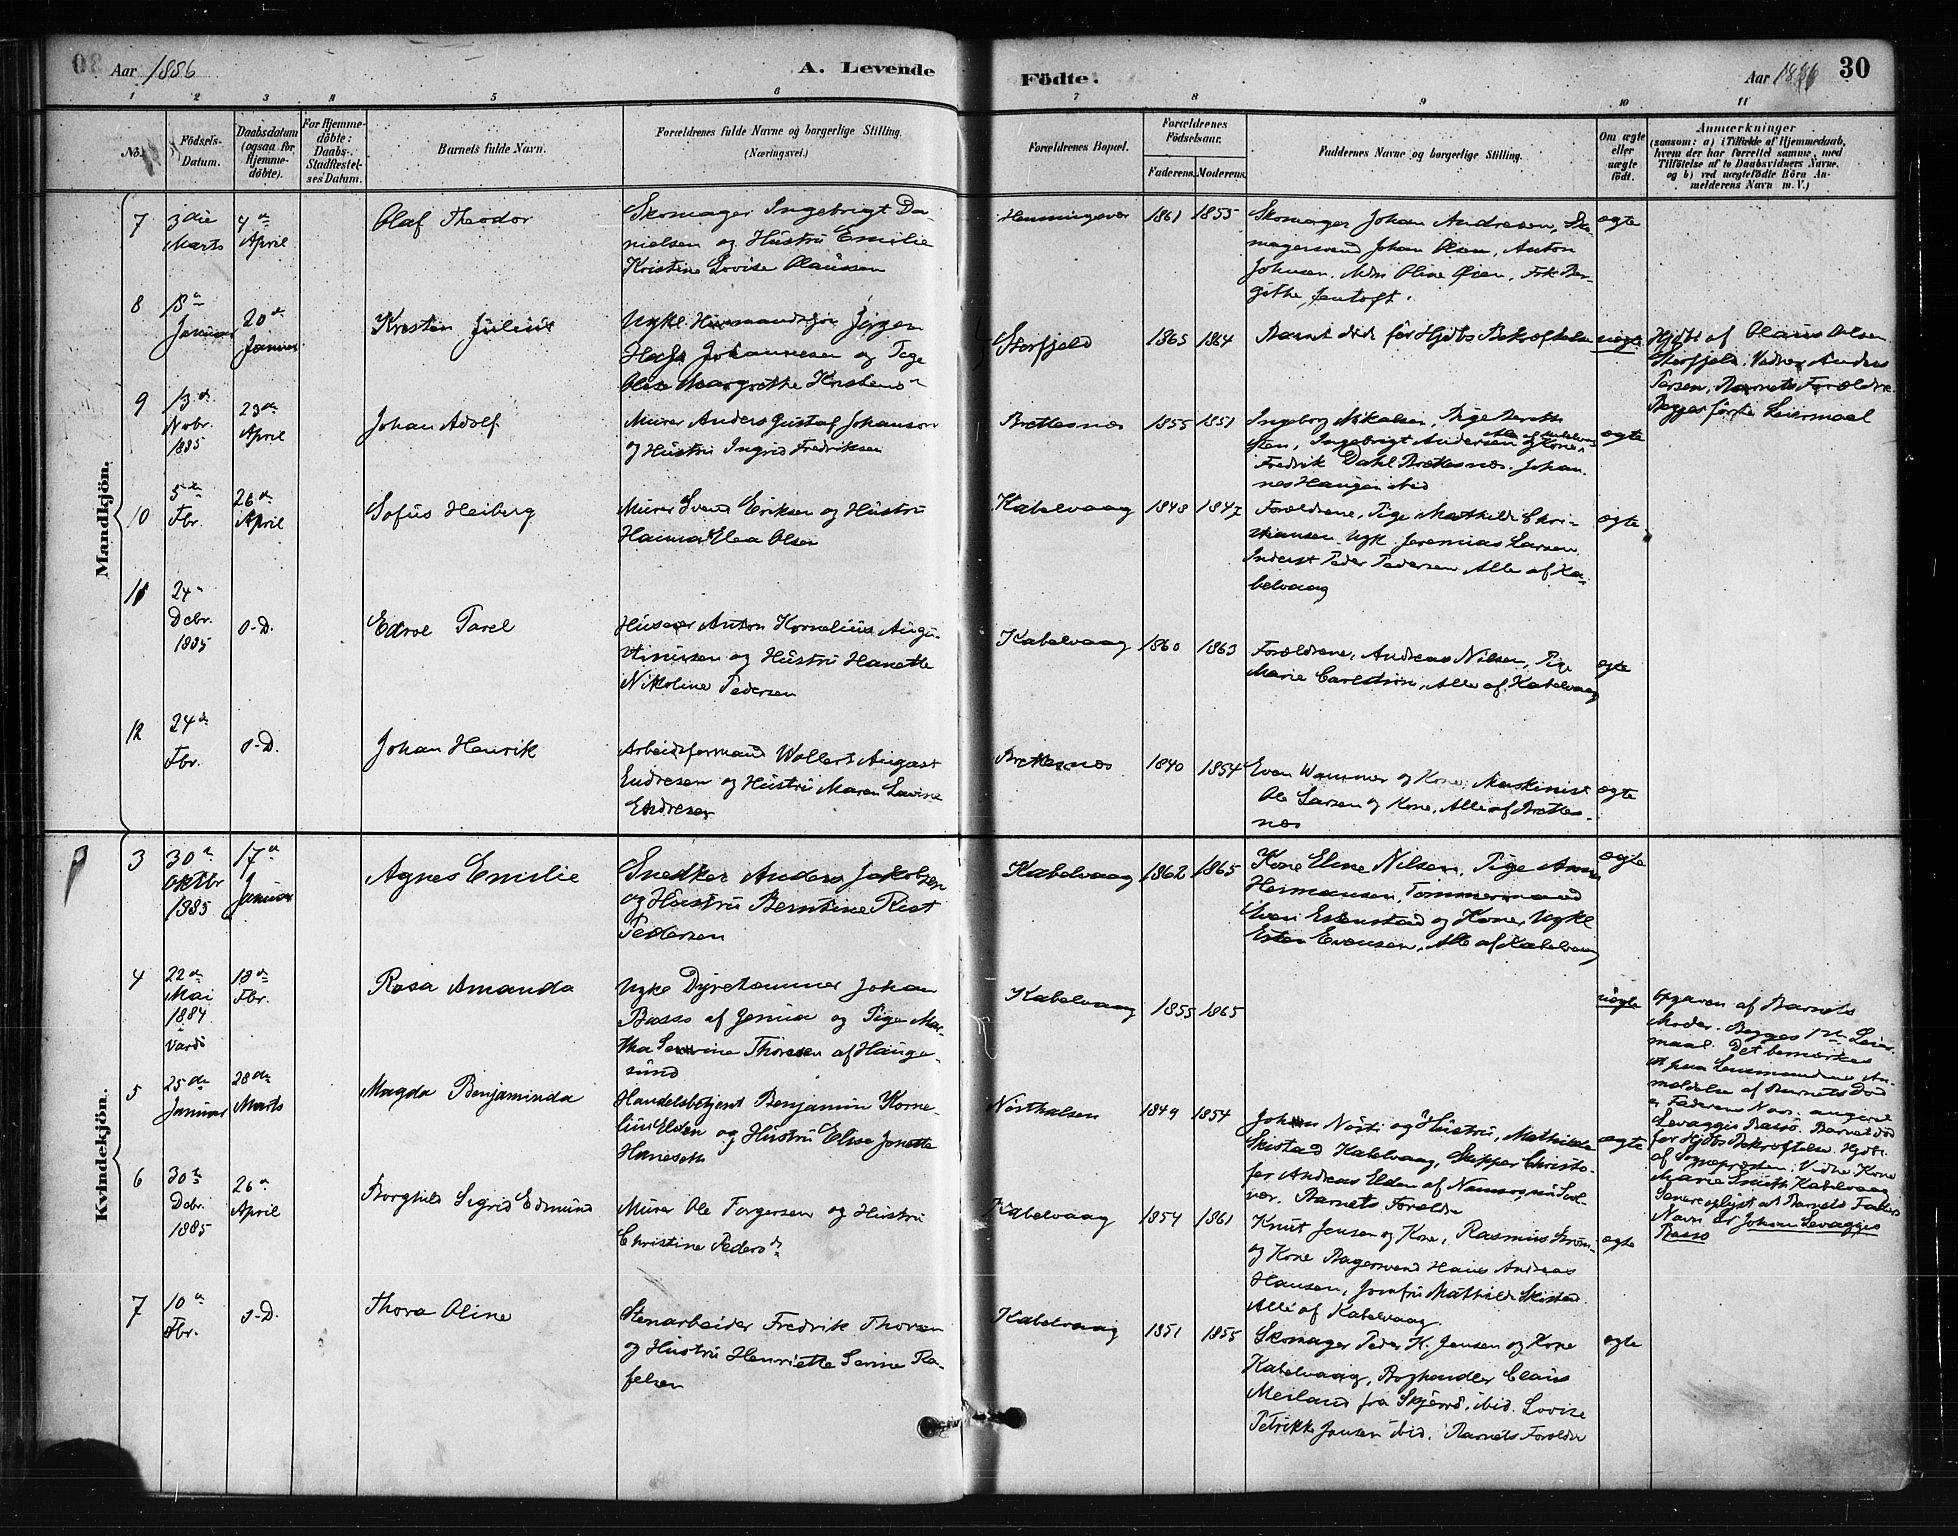 Aar 1886
A. Levende
Födte.
Aar 1886
30
1 2 3 4 5 6 7 8 9 10 11
No.
Födsels-
Datum.
Daabsdatum
(ogsaa for
Hjemme-
döbte).
For Hjemme-
döbte:
Daabs-
Stadfæstel-
ses Datum.
Barnets fulde Navn.
Forældrenes fulde Navne og borgerlige Stilling.
(Næringsvei.)
Forældrenes Bopæl.
Forældrenes
Födselsaar.
Faderens. Moderens.
Faddernes Navne og borgerlige Stilling.
Om ægte
eller
uægte
födt.
Anmærkninger
(saasom: a) i Tilfælde af Hjemmedaab,
hvem der har forrettet samme, med
Tilföielse af to Daabsvidners Navne,
og b) ved uægtefödte Börn An-
melderens Navn m. V.)
Mandkjön.
7
3die
Marts
4de
April
Olaf Theodor
Skomager Ingebrigt Da
nielsen og Hustru Emilie
Kristine Lovise Olaussen
Henningsvær
1861 1855
Skomager Johan Andresen, Sko-
magersvend Johan Olsen, Anton
Johnsen, Mdm Oline Øien, Frk Ber-
githe Jentoft.
ægte
8
18
Januar
20de
Januar
Kristen Julius
Ugkl. Husmandssøn Jørgen
Johannesen og Pige
Oline Margrethe
Storfjeld
1865 1864
Barnet död før Hjdbs Bekræftelse
uægte
Hjdbt af Olaus Olsen
Storfjeld. Vidner Anders
Barnets Forældre.
Begges første Leiermaal
9
13de
Novbr.
1885
23de
April
Johan Adolf
Murer Anders Gustaf Johanson
og Hustru Ingrid Fredriksen
Brettesnæs
1855 1851
Ingeborg Mikalsen, Pige
Ingebrigt Andersen og Kone,
Fredrik Dahl Brettesnæs. Johan
nes Haugen ibid
ægte
10
5te
Fbr.
26de
April
Sofus Heiberg
Murer Svend Eriksen og Hustru
Hanna Elea Olsen
Kabelvaag
1848 1847
Forældrene, Pige Mathilde Chri-
stiansen, Ugk. Jeremias Larsen
Inderst Peder Pedersen Alle af Ka-
belvaag
ægte
11
24
Decbr.
1885
s. D.
Edvol Parel
Huseier Anton Kornelius Augu-
stinusen og Hustru Hanette
Nikoline Pedersen
Kabelvaag
1860 1863
Forældrene, Andreas Nilsen, Pige
Marie Carlström, Alle af Kabelvaag
ægte
12
24de
Fbr.
s. D.
Johan Henrik
Arbeidsformand Wollert August
Endresen og Hustru Maren Lavine
Endresen
Brettesnæs
1840 1854
Even Wammer og Kone, Maskinist
Ole Larsen og Kone, Alle af Brettes-
næs
ægte
Kvindekjön.
3
30te
Oktbr
1885
17de
Januar
Agnes Emilie
Snedker Anders Jakobsen
og Hustru Berntine Rist
Pedersen
Kabelvaag
1862 1865
Kone Eline Nilsen, Pige Anna
Hermansen, Tømmermand
Even Estenstad og Kone, Ugkl
Esten Evensen, Alle af Kabelvaag
ægte
4
22de
Mai
1884
Vardö
18de
Fbr.
Rosa Amanda
Ugkl Dyretæmmer Johan
Basso af Genua og Pige Mar-
tha Severine Thoresen af Hauge-
sund
Kabelvaag
1855 1865
uægte
Opgaven af Barnets
Moder. Begges 1ste Leier-
maal. Det bemærkes
at paa Lensmandens An-
meldelse af Barnets Död
er Faderens Navn angivet
Levaggis Basso. Barnet död
før Hjdbs Bekræftelse. Hjdbt
af Sognepræsten. Vidne Kone
Marie Smith Kabelvaag
Senere oplyst at Barnets Faders
Navn er Johan Levaggis
Basso
5
25de
Januar
28de
Marts
Magda Benjaminda
Handelsbetjent Benjamin Korne-
lius Elden og Hustru Elise Jonette
Hanseth
Nørthalsen
1849 1854
Johan Nösti og Hustru, Mathilde
Skistad Kabelvaag, Skipper Christo-
fer Andreas Elden af Namsos, nu Svol-
vær. Barnets Forældre
ægte
6
30te
Decbr.
1885
26de
April
Borghild Sigrid Edmund
Murer Ole Torgersen og Hustru
Christine Pedersdr
Kabelvaag
1854 1861
Knut Jensen og Kone, Rasmus Strøm
og Kone Bagersvend Hans Andreas
Hansen, Jomfru Mathilde Skistad
Alle af Kabelvaag
ægte
7
10de
Fbr.
s. D.
Thora Oline
Stenarbeider Fredrik Thoresen
og Hustru Henriette Serine Ra-
felsen
Kabelvaag
1851 1855
Skomager Peder K. Jensen og Kone
Kabelvaag, Boghandler Claus
Meiland fra Skjærvø, ibid. Lovise
Petrikke Jensen ibid. Barnets Forældre
ægte